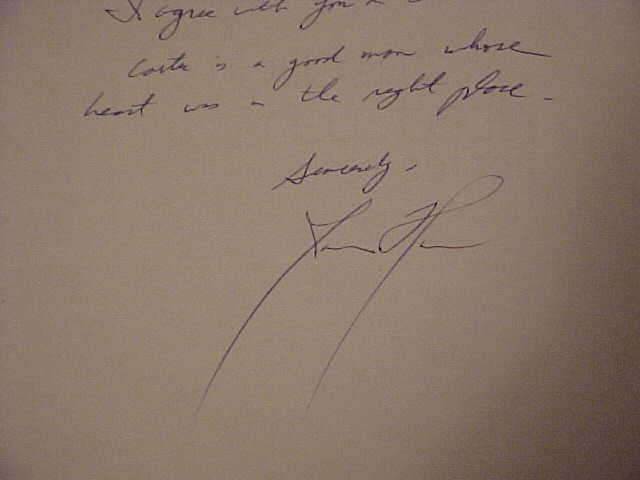 I agree with you
Carter is a good man whose
heart was in the right place.
Sincerely,